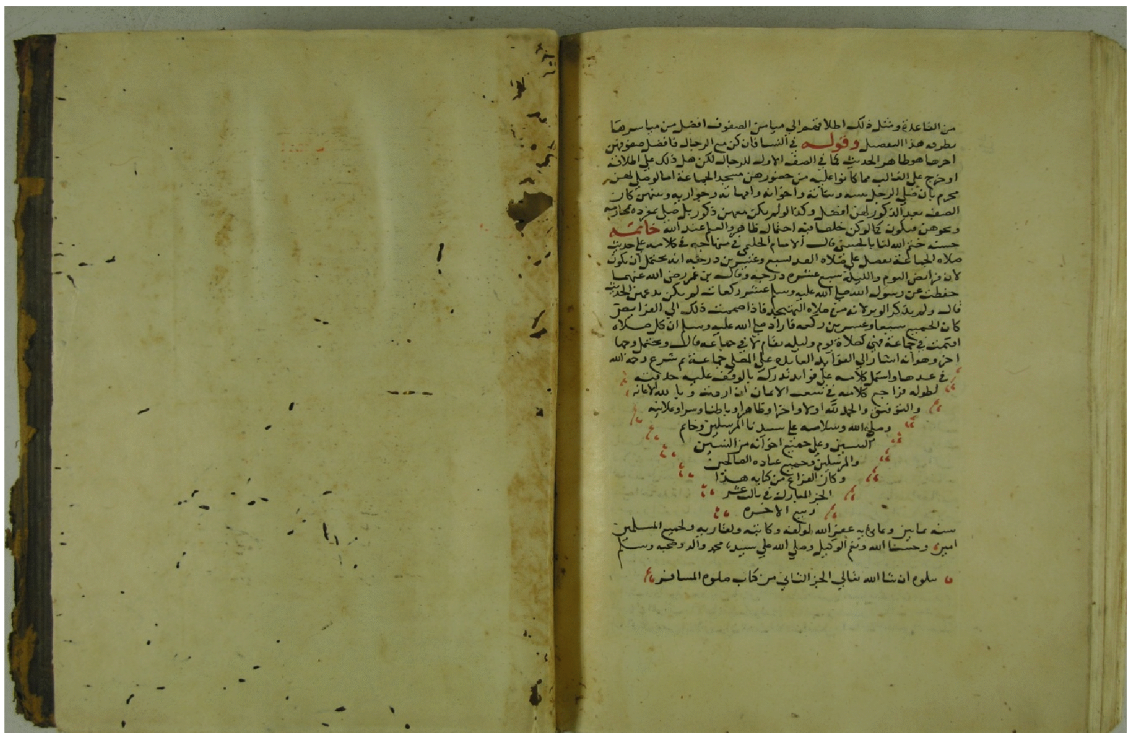 من القاعدة ومثل ذلك اطلاقهم الي ميامن الصفوف افضل من مياسرها
يطرقه هذا التفصيل وقوله في النسا فان كن مع الرجال فافضل صفوفهن
اخرها هو ظاهر الحديث كما في الصف الاول للرجال لكن هل ذلك علي اطلاقه
او خرج علي الغالب مما كانوا عليه من حضورهن مسجد الجماعة اما لو صلي بهن
محرم بان صلي الرجل ببنته واخواته وامهاته وجواريه ومنهن كان
الصف بعد الذكور لهن افضل وكذا لو لم يكن معهن ذكور بل صلي بمحارمه
ونحوهن فيكون كما لو كن خلصا فيه احتمال ظاهر والعلم عند الله خاتمة
حسنة ختم الله لنا بالحسني قال الامام الحليمي في منهاجه في كلامه علي حديث
صلاة الجماعة تفضل علي صلاة الفذ بسبع وعشرين درجة انه يحتمل ان يكون
لان فرايض اليوم والليلة سبع عشره درجه وقال بن عمر رضي الله عنهما
حفظت عن رسول الله صلي الله عليه وسلم عشر ركعات لم يكن يدعهن الحديث
قال ولم يذكر الوتر لانه من صلاة التهجد فاذا ضممت ذلك الي الفرايض
كان الجميع سبعا وعشرين ركعه فاراد صلي الله عليه وسلم ان كل صلاة
اقيمت في جماعة فهي كصلاة يوم وليله تقام لا في جماعة قال ويحتمل وجها
اخر وهو انه اشار الي الفوايد العايده علي المصلي جماعة ثم شرع رحمه الله
في عدها واشتمل كلامه علي فوايد تدرك بالوقف عليه حذفته
لطوله فراجع كلامه في شعب الايمان ان اردته وبالله الاعانه
والتوفيق والحمد لله اولا واخرا وظاهرا وباطنا وسرا وعلانيه
وصلي الله وسلامه علي سيدنا المرسلين وخاتم
النبيين وعلي جميع اخوانه من النبيين
والمرسلين وجميع عباده الصالحين
وكان الفراغ من كتابه هذا
الجز المبارك في ثالث عشر
ربيع الاخره
سنه ماين وغفر الله لمؤلفه وكاتبه ولقاريه ولجميع المسلمين
امين وحسبنا الله ونعم الوكيل وصلي الله علي سيدنا محمد واله وصحبه وسلم
يتلوه ان شا الله تعالي الجز الثاني من كتاب صلوة المسافر